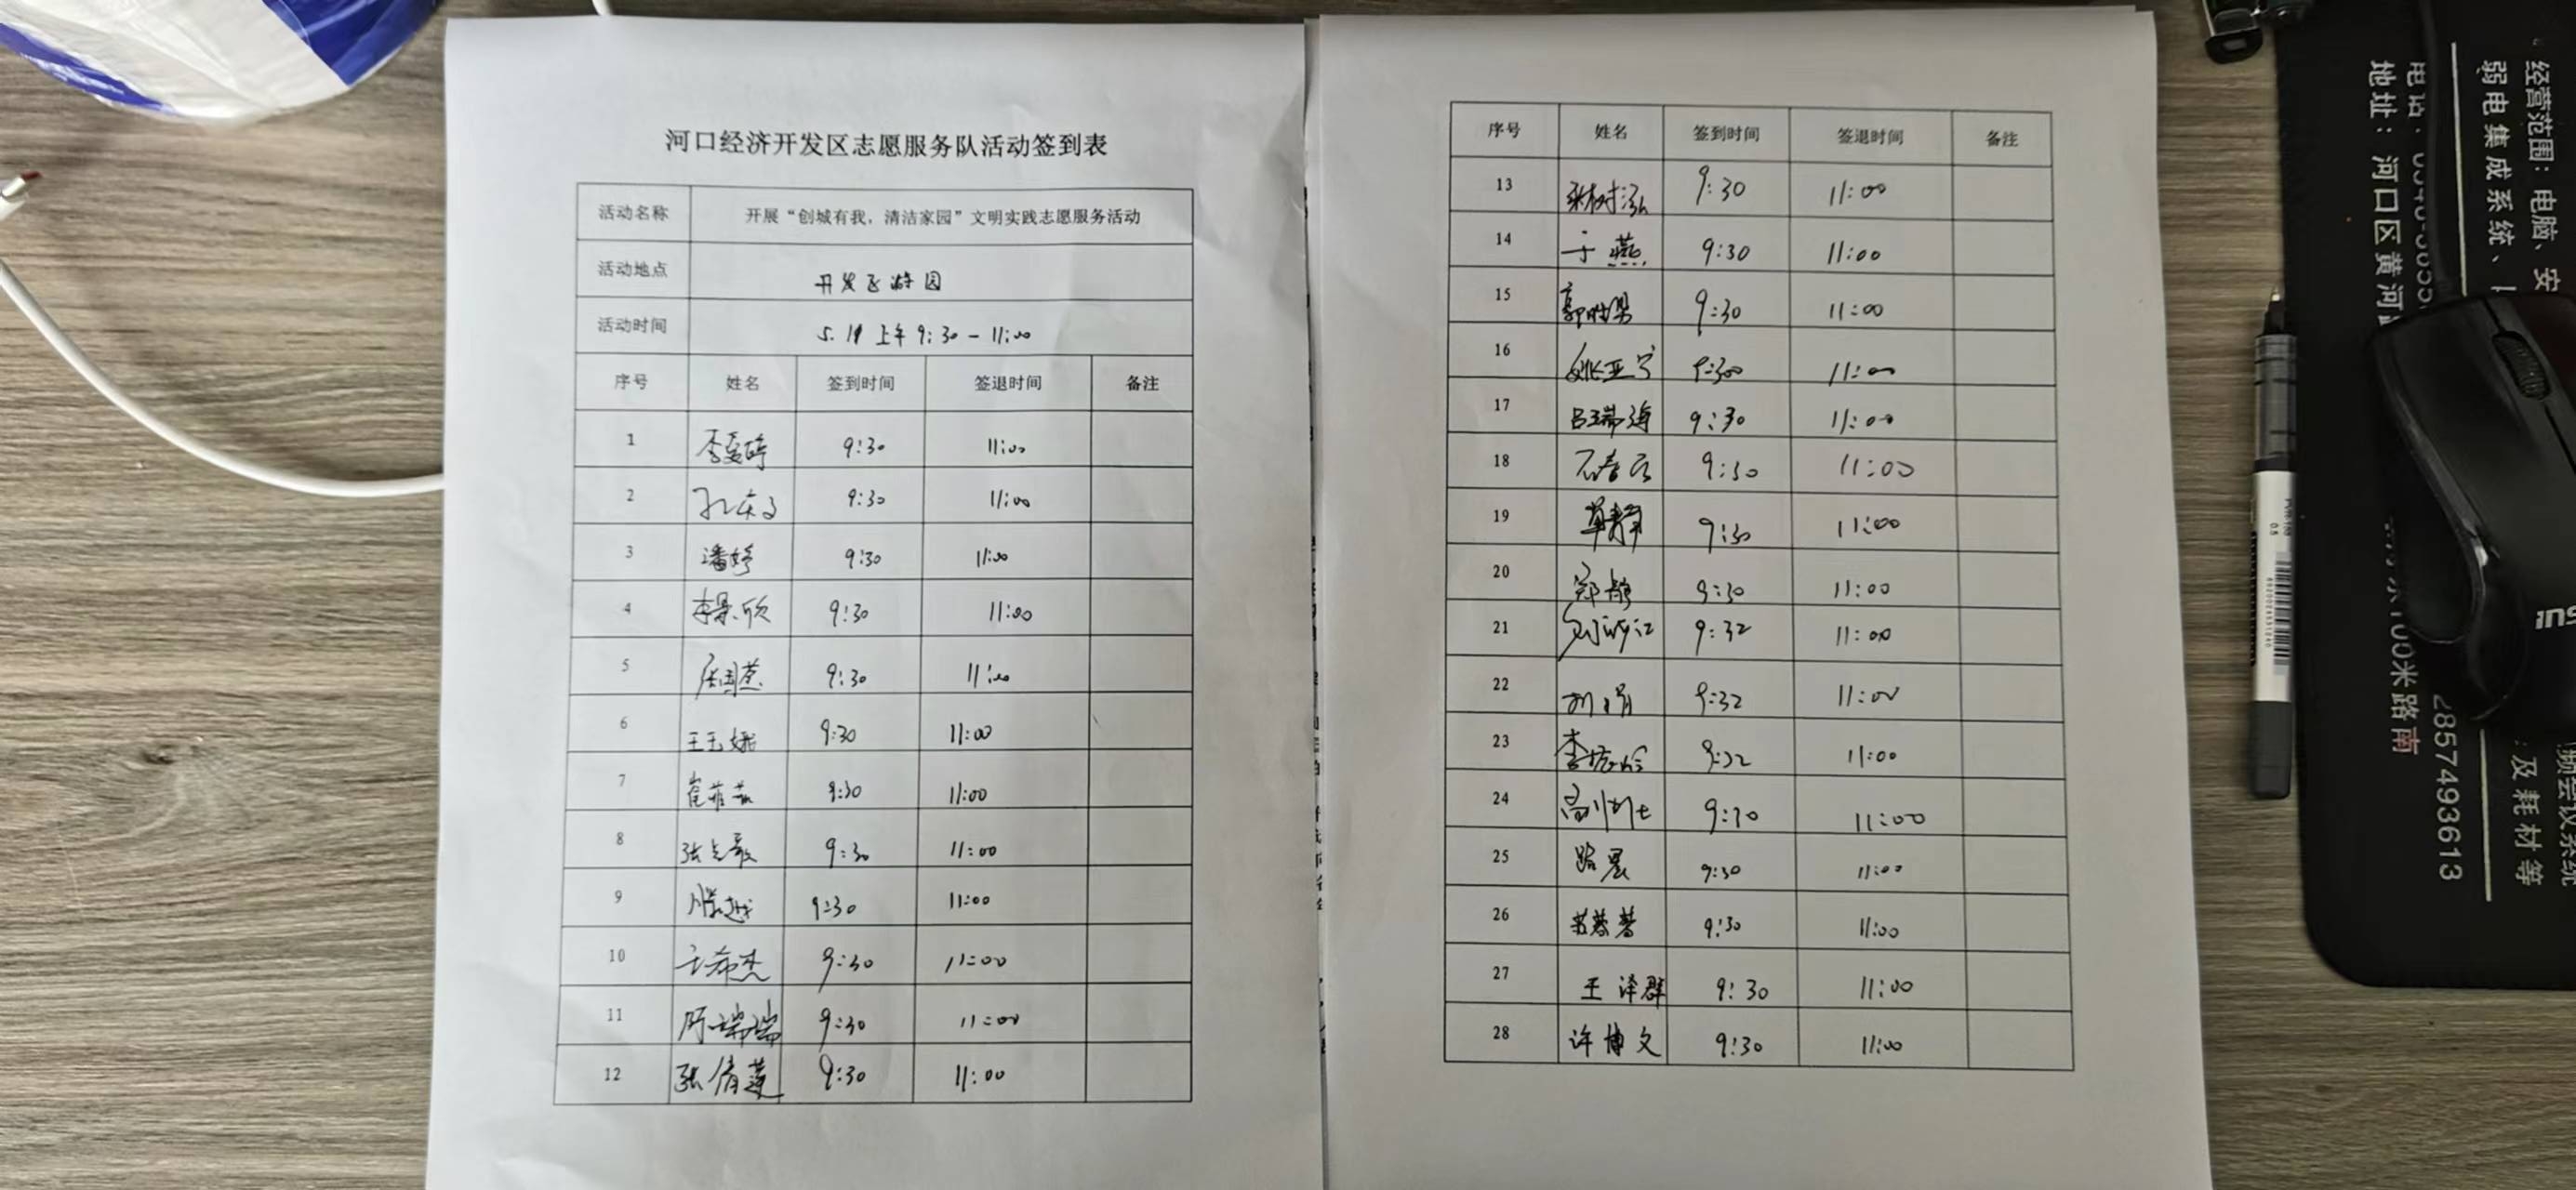 河口经济开发区志愿服务队活动签到表
活动名称 开展“创城有我，清洁家园”文明实践志愿服务活动
活动地点 开发区游园
活动时间 5.11 上午 9:30-11:00
序号 姓名 签到时间 签退时间 备注
1 9:30 11:00
2 9:30 11:00
3 潘婷 9:30 11:00
4 李景欣 9:30 11:00
5 9:30 11:00
6 王玉娥 9:30 11:00
7 崔菲菲 9:30 11:00
8 9:30 11:00
9 滕越 9:30 11:00
10 王希杰 9:30 11:00
11 瑞瑞 9:30 11:00
12 张倩莲 9:30 11:00
序号 姓名 签到时间 签退时间 备注
13 9:30 11:00
14 于燕 9:30 11:00
15 9:30 11:00
16 姚亚宁 9:30 11:00
17 吕瑞海 9:30 11:00
18 9:30 11:00
19 单静 9:30 11:00
20 郭静 9:30 11:00
21 9:32 11:00
22 刘娟 9:32 11:00
23 9:32 11:00
24 9:30 11:00
25 路晨 9:30 11:00
26 9:30 11:00
27 王泽群 9:30 11:00
28 许博文 9:30 11:00
经营范围：电脑、安
弱电集成系统、
地址：河口区黄河
100米路南
2857493613
及耗材等